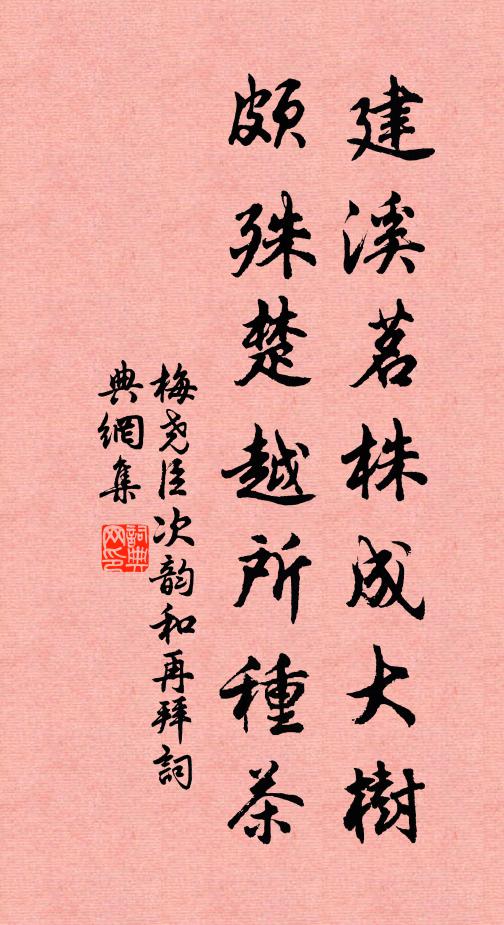 建溪茗株成大樹
頗殊楚越所種茶
梅尧臣次韵和再拜詞
典網集
詞典网印